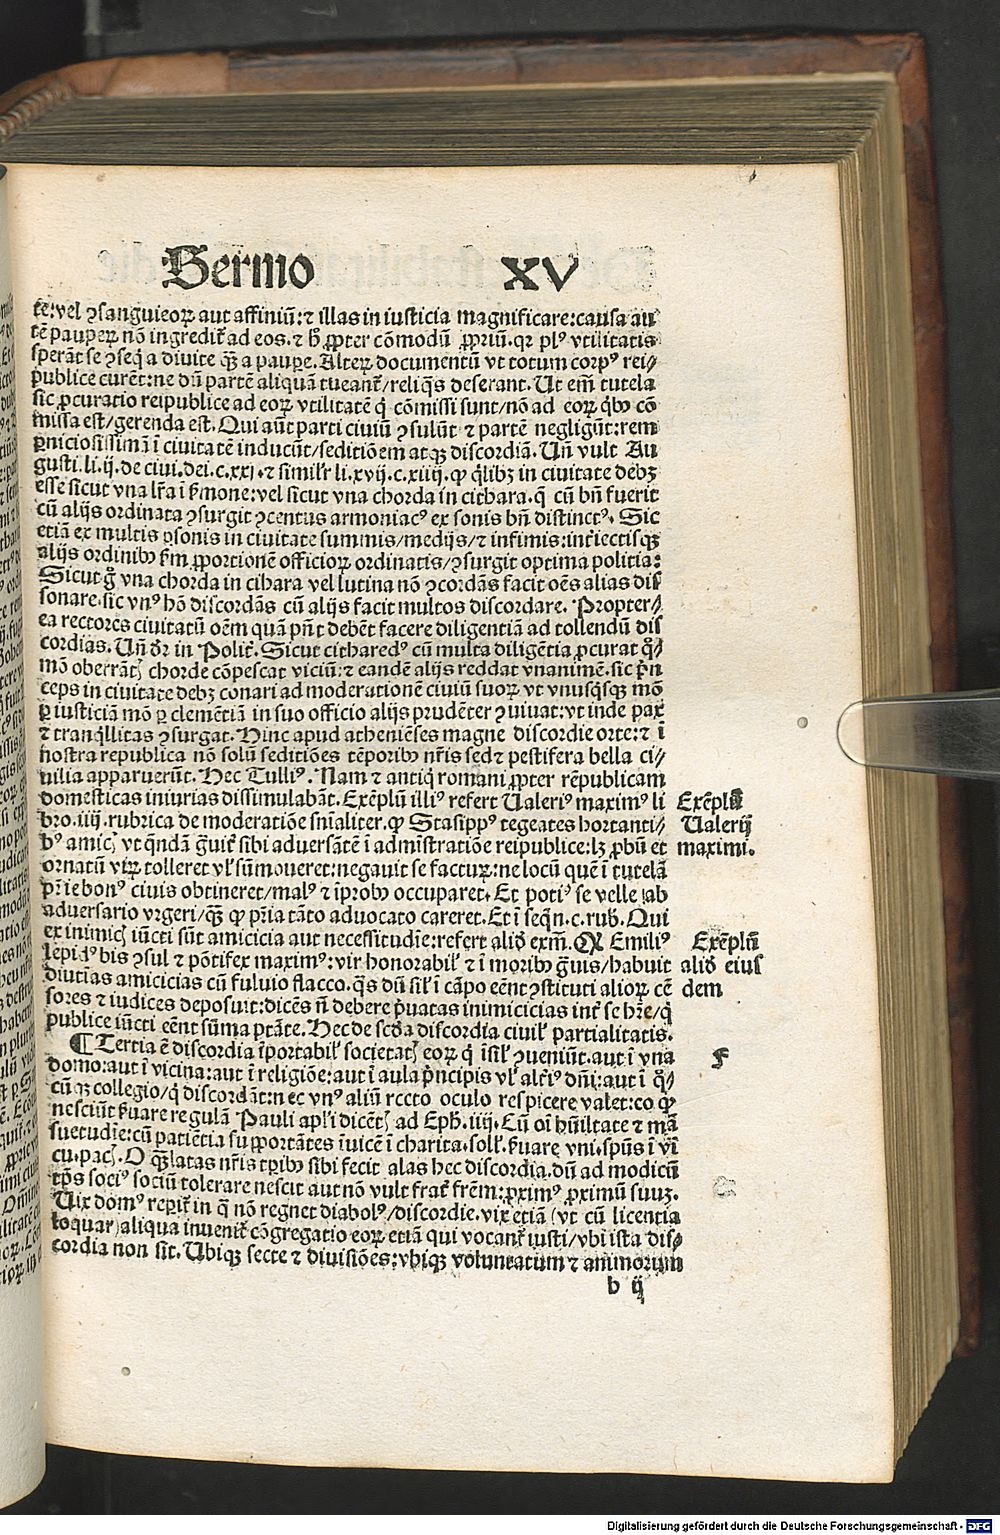 Sermo XV
te:vel ꝯsanguieoꝝ aut affiniū:⁊ illas in iusticia magnificare:causa aūt
tē pauperꝝ nō ingredit̄ ad eos.⁊ hͦ ꝓpter cōmodū ꝓpriū.qꝛ plꝰ vtilitatis
sperāt se ꝯseq̄ a diuite q̄ꝫ a paupe.Alterꝝ documentū vt totum corpꝰ rei⸗
publice curēt:ne dū partē aliquā tueant̄/reliq̄s deserant. Ut em̄ tutela
sic ꝓcuratio reipublice ad eoꝝ vtilitatē q̇ cōmissi sunt/nō ad eoꝝ q̇bꝰ cō
missa est/gerenda est. Qui aūt parti ciuiū ꝯsulūt ⁊ partē negligūt:rem
ꝑniciosissimā ī ciuitatē inducūt/seditiōem atqꝫ discordiā. Un̄ vult Au
gusti.li.ij.de ciui.dei.c.xxj.⁊ simil̄r li.xvij.c.xiiij.ꝙ q̄libꝫ in ciuitate debꝫ
esse sicut vna lr̄a ī s̄mone:vel sicut vna chorda in cithara.q̄ cū bn̄ fuerit
cū alijs ordinata ꝯsurgit ꝯcentus armoniacꝰ ex sonis bn̄ distinctꝰ. Sic
etiā ex multis ꝑsonis in ciuitate summis/medijs/⁊ infimis:int̄iectisqꝫ
alijs ordinibꝰ s̄m ꝓportionē officioꝝ ordinatis/ꝯsurgit optima politia:
Sicut g̊ vna chorda in cihara vel lutina nō ꝯcordās facit oēs alias dis
sonare.sic vnꝰ hō discordās cū alijs facit multos discordare. Propter⸗
ea rectores ciuitatū oēm quā pn̄t debēt facere diligentiā ad tollendū dis
cordias. Un̄ dr̄ in Polit̄. Sicut citharedꝰ cū multa diligētia ꝓcurat q̊⸗
mō oberrātꝭ chorde cōpescat viciū:⁊ eandē alijs reddat vnanimē.sic p̄n
ceps in ciuitate debꝫ conari ad moderationē ciuiū suoꝝ vt vnusq̇sqꝫ mō
ꝑ iusticiā mō ꝑ clemētiā in suo officio alijs prudēter ꝯuiuat:vt inde pax
⁊ tranq̇llitas ꝯsurgat. Hinc apud atheniēses magne discordie orte:⁊ ī
nostra republica nō solū seditiōes tēporibꝰ nr̄is sed⁊ pestifera bella ci⸗
uilia apparuerūt. Hec Tulliꝰ. Nam ⁊ antiq̇ romani ꝓpter rēpublicam
domesticas iniurias dissimulabāt. Exēplū illiꝰ refert Ualeriꝰ maximꝰ li
bro.iiij.rubrica de moderatiōe sn̄ialiter.ꝙ Stasippꝰ tegeates hortanti⸗
bꝰ amicꝭ vt q̄ndā g̊uit̄ sibi aduersātē ī admīstratiōe reipublice:lꝫ ꝓbū et
ornatū virꝝ tolleret vl̄ sūmoueret:negauit se facturꝝ:ne locū quē ī tutelā
pr̄ie bonꝰ ciuis obtineret/malꝰ ⁊ īprobꝰ occuparet. Et potiꝰ se velle ab
aduersario vrgeri/q̄ꝫ ꝙ pr̄ia tāto aduocato careret. Et ī seq̄n.c.rub. Qui
ex inimicꝭ iūcti sūt amicicia aut necessitudīe:refert aliḋ exm̄. M Emiliꝰ
lepidꝰ bis ꝯsul ⁊ pōtifex maximꝰ:vir honorabil̄ ⁊ ī moribꝰ g̊uis/habuit
diutīas amicicias cū fuluio flacco.q̄s dū sil̄ ī cāpo eēnt ꝯstituti alioꝝ cē
sores ⁊ iudices deposuit:dicēs n̄ debere p̄uatas inimicicias int̄ se hr̄e/q̇
publice iūcti eēnt sūma ptāte. Hec de scḋa discordia ciuil̄ partialitatis.
¶ Tertia ē discordia īportabil̄ societatꝭ eoꝝ q̇ īsil̄ ꝯueniūt.aut ī vna
domo:aut ī vicina:aut ī religiōe:aut ī aula p̄ncipis vl̄ alt̄iꝰ dn̄i:aut ī q̊⸗
cūqꝫ collegio/q̇ discordāt:nec vnꝰ aliū recto oculo respicere valet:eo ꝙ
nesciūt s̄uare regulā Pauli apl̄i dicētꝭ ad Eph.iiij. Cū oī hūilitate ⁊ mā
suetudīe:cū patiētia supportātes īuicē ī charita.soll̄.s̄uare vni.spūs ī vī
cu.pacꝭ. O q̄ꝫ latas nr̄is tpībꝰ sibi fecit alas hec discordia.dū ad modicū
tp̄s sociꝰ sociū tolerare nescit aut nō vult frat̄ frēm:ꝓximꝰ ꝓximū suuꝫ.
Uix domꝰ reꝑit̄ in q̄ nō regnet diabolꝰ/discordie.vix etiā (vt cū licentia
loquar) aliqua inuenit̄ cōgregatio eoꝝ etiā qui vocant̄ iusti/vbi ista dis⸗
cordia non sit. Ubiqꝫ secte ⁊ diuisiōes:vbiqꝫ voluntatum ⁊ animorum
b ij
Exēplū
Ualerij
maximi.
Exēplū
aliḋ eius
dem
F
Digitalisierung gefördert durch die Deutsche Forschungsgemeinschaft - DFG